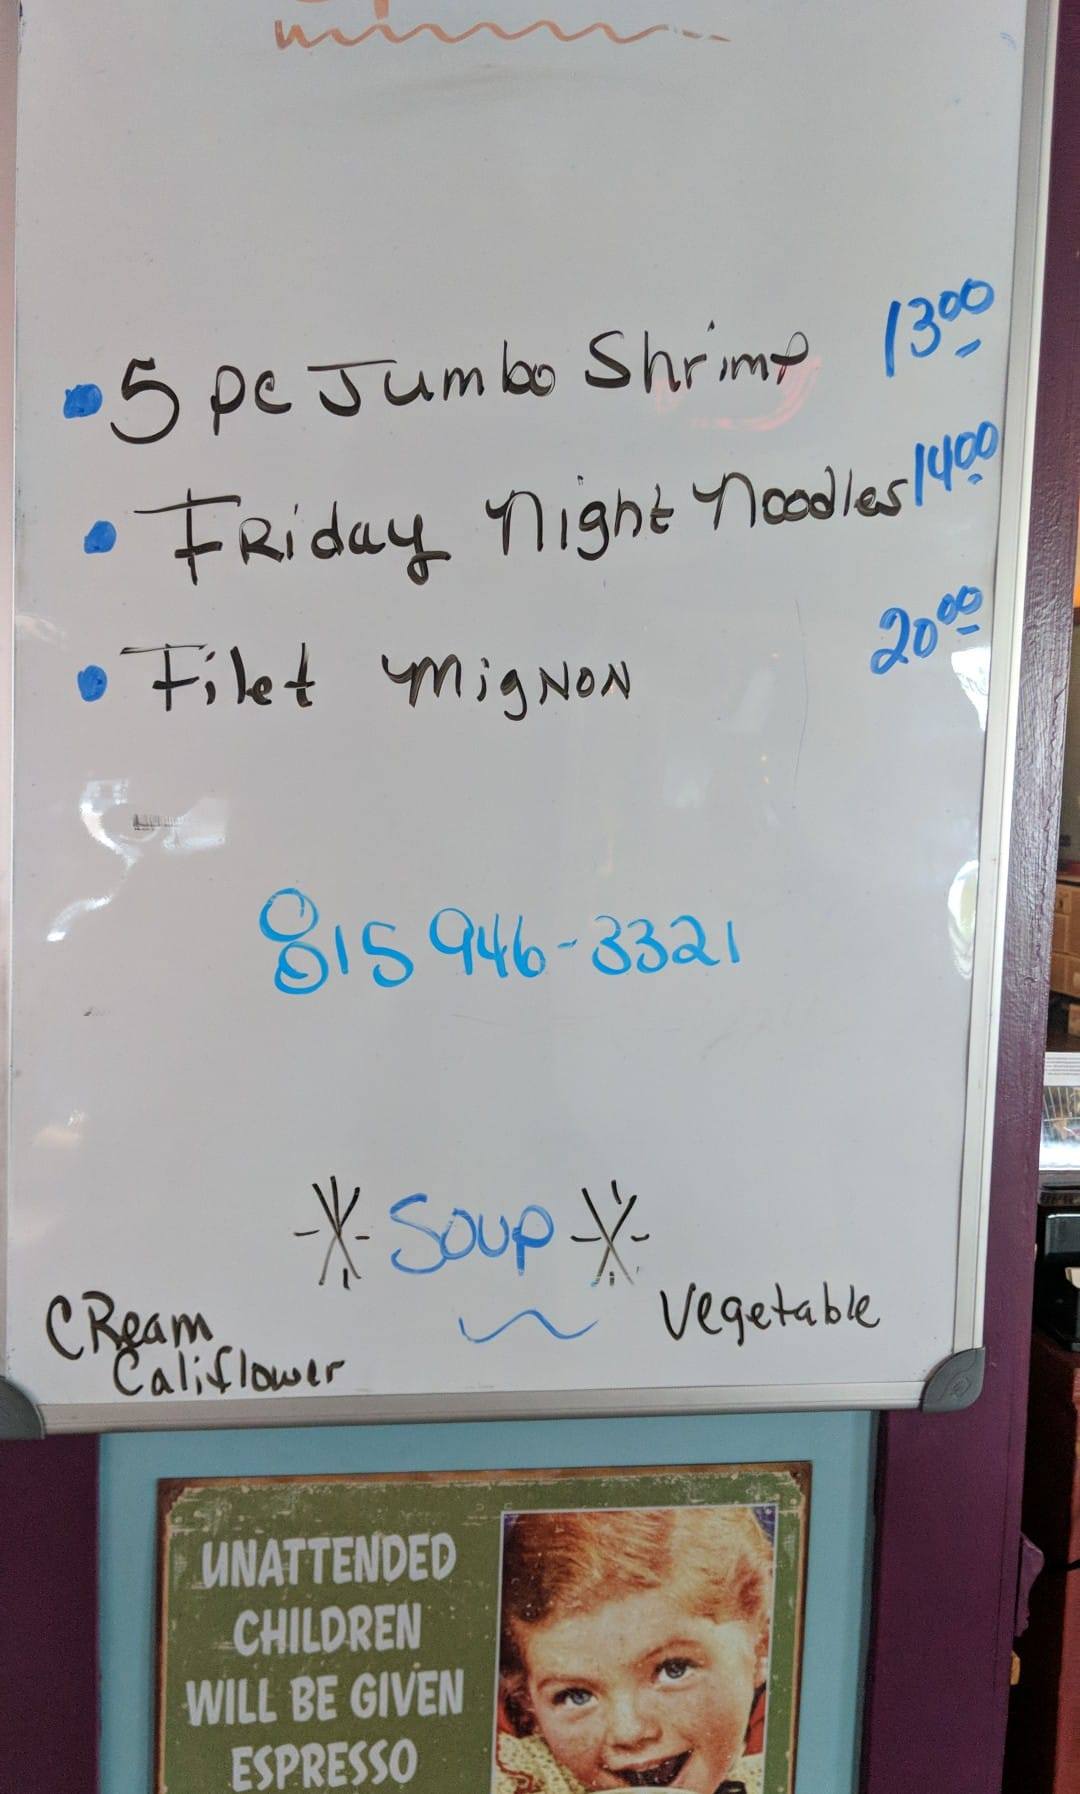 5 pc Jumbo Shrimp 13.00
Friday Night Noodles 14.00
Filet Mignon 20.00
815 946-3321
Soup
CReam
Califlower
Vegetable
UNATTENDED
CHILDREN
WILL BE GIVEN
ESPRESSO